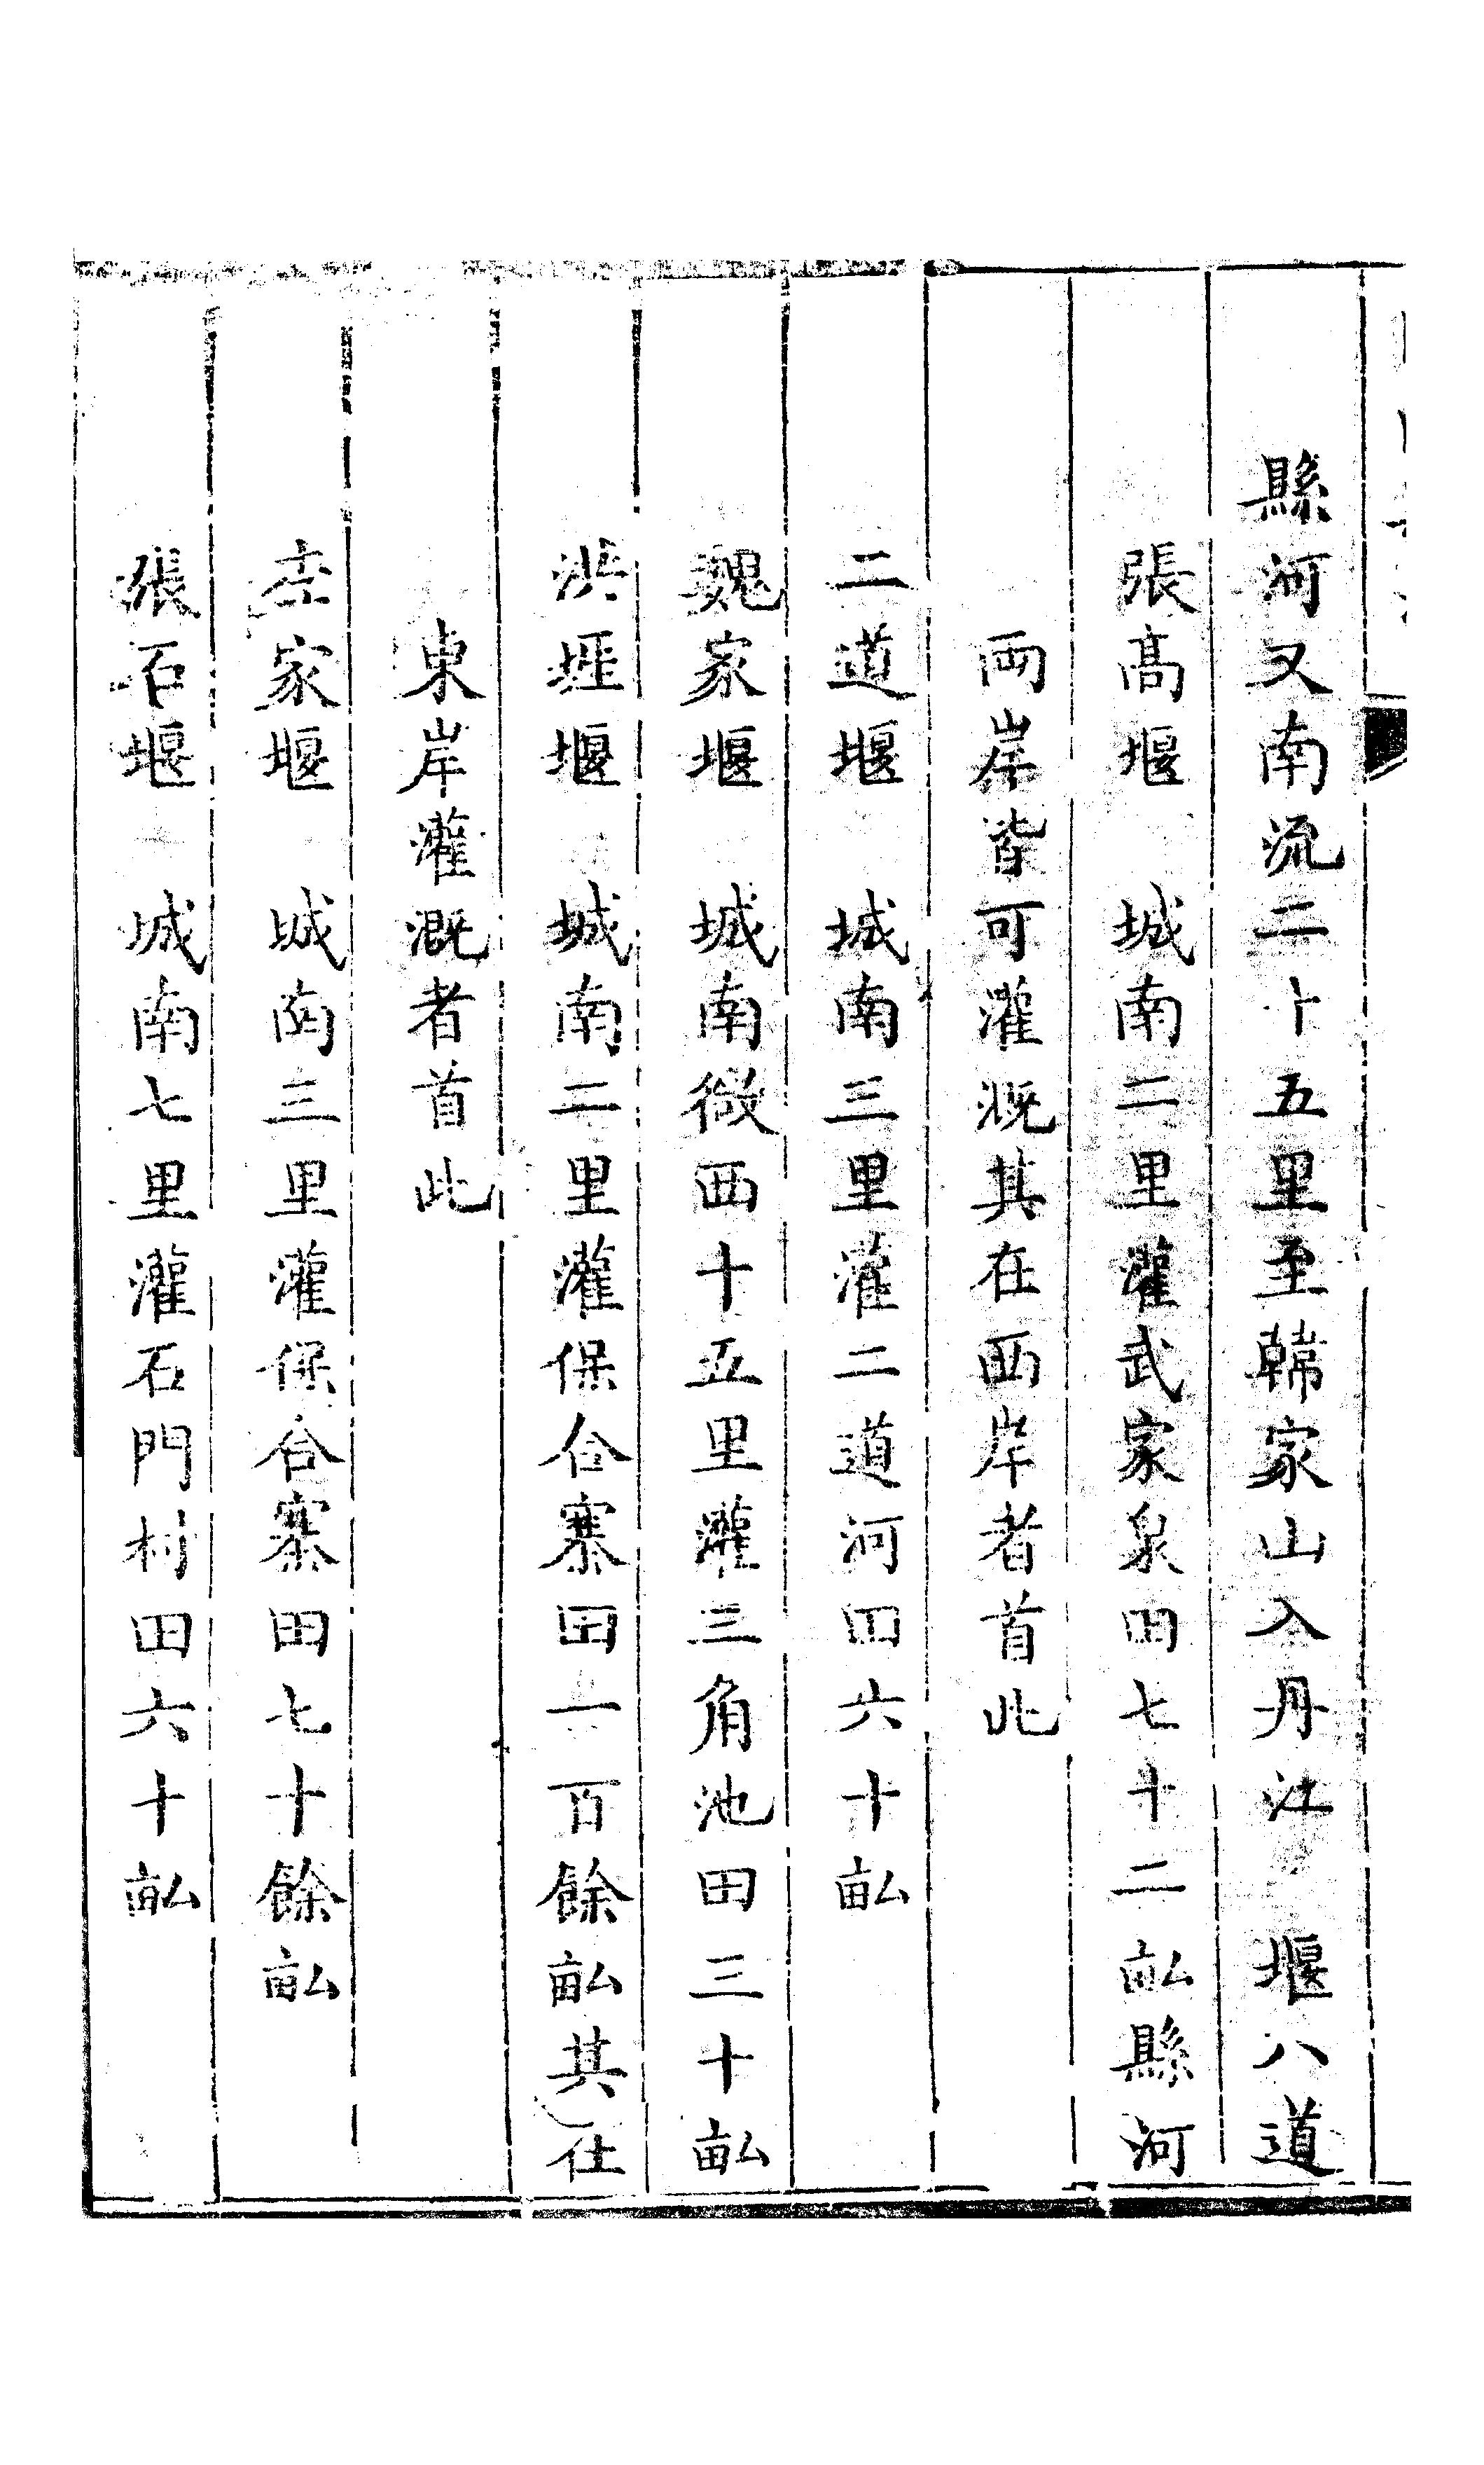 縣河又南流二十五里至韓家山入丹江　堰八道
張高堰　城南二里灌武家泉田七十二畝縣河
両岸皆可灌溉其在西岸者首此
二道堰　城南三里灌二道河田六十畝
魏家堰　城南微西十五里灌三角池田三十畝
洪堐堰　城南二里灌保合寨田一百餘畝其在
東岸灌溉者首此
左家堰　城南三里灌保合寨田七十餘畝
張石堰　城南七里灌石門村田六十畝